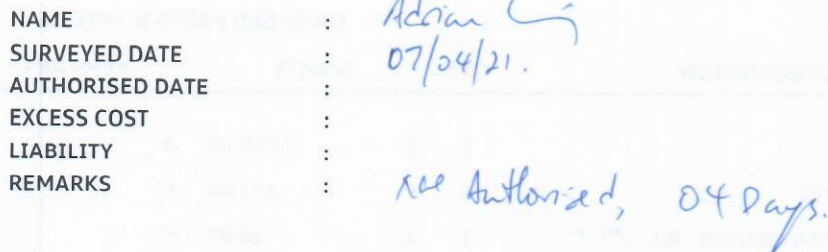 NAME : Adrian
SURVEYED DATE : 07/04/21.
AUTHORISED DATE :
EXCESS COST :
LIABILITY :
REMARKS : Not Authorised, 04 Days.